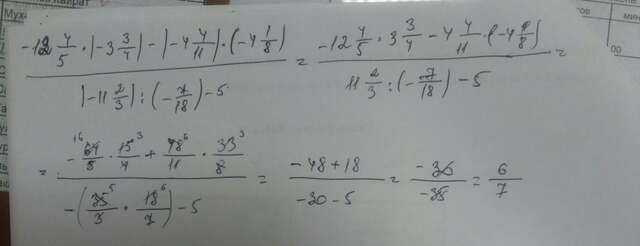 Муха
(-12 4/5 · |-3 3/4| - |-4 4/11| · (-4 1/8)) / (|-11 2/3| : (-7/18) - 5) = (-12 4/5 · 3 3/4 - 4 4/11 · (-4 1/8)) / (11 2/3 : (-7/18) - 5) =
= (-64/5 · 15/4 + 48/11 · 33/8) / (-(35/3 · 18/7) - 5) = (-48+18) / (-30-5) = -30/-35 = 6/7